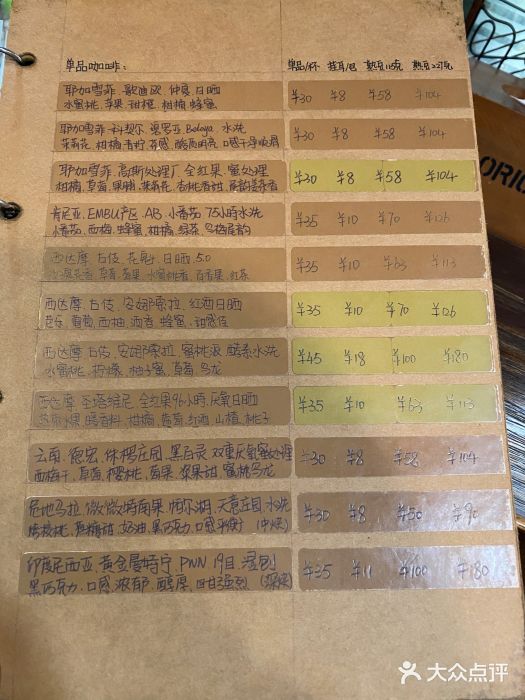 单品咖啡: 单品/杯 挂耳/包 熟豆115克 熟豆227克
耶加雪菲.歌迪欧.仲夏日晒 ¥30 ¥8 ¥58 ¥104
水蜜桃.苹果.甜橙.柑橘.蜂蜜
耶加雪菲.科契尔 Beloya 水洗 ¥30 ¥8 ¥58 ¥104
茉莉花.柑橘.青柠.
耶加雪菲.高斯处理厂.全红果.蜜处理 ¥30 ¥8 ¥58 ¥104
柑橘.草莓.果脯.茉莉花.
肯尼亚.EMBU产区.AB.小番茄.75小时水洗 ¥35 ¥10 ¥70 ¥126
小番茄.西梅.蜂蜜.柑橘.绿茶.乌梅尾韵
西达摩.古伎.花魁.日晒.5.0 ¥35 ¥10 ¥63 ¥113
草莓.水蜜桃香.百香果.红茶
西达摩.古伎.安娜索拉.红酒日晒 ¥35 ¥10 ¥70 ¥126
葡萄.西柚.酒香.蜂蜜.甜感佳
西达摩.古伎.安娜索拉.蜜桃派.酵素水洗 ¥45 ¥18 ¥100 ¥180
水蜜桃.柠檬.柚子蜜.草莓.乌龙
西达摩.圣塔维尼.全红果96小时.厌氧日晒 ¥35 ¥10 ¥63 ¥113
柑橘.葡萄.红酒.山楂.桃子
云南.德宏.庄园.黑百灵.双重厌氧蜜处理 ¥30 ¥8 ¥58 ¥104
西梅干.草莓.樱桃.莓果.苹果甜.蜜桃乌龙
危地马拉.微微特南果.帕尔湖.天意庄园.水洗 ¥30 ¥8 ¥50 ¥90
烤核桃.焦糖甜.奶油.黑巧克力.口感平衡 (中烘)
印度尼西亚.黄金曼特宁.PWN 19目.湿刨 ¥35 ¥11 ¥100 ¥180
黑巧克力.口感浓郁.醇厚.回甘强烈 (深烘)
ORIG
大众点评